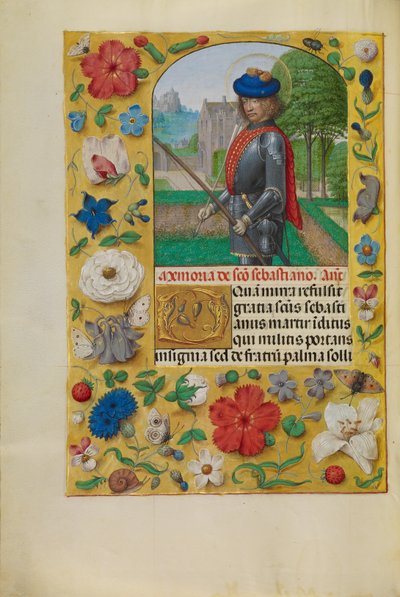 Memoria de sc̄o sebastiano. Añ
Quā mira refulsit
gratia sc̄us sebasti
anus martir iditus
qui militis portans
insignia sed de fratrū palma solli